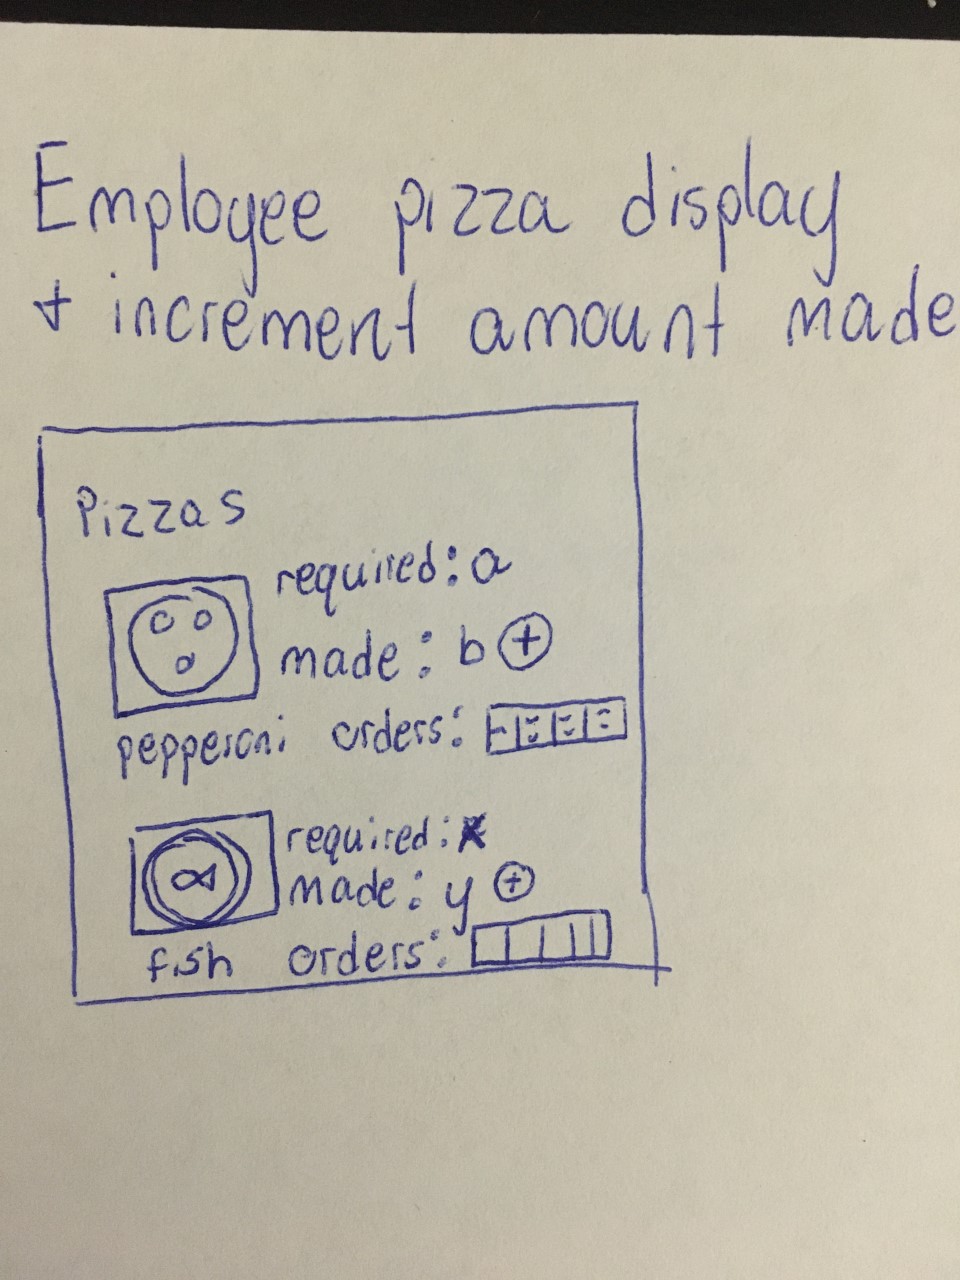 Employee pizza display
+ increment amount made
Pizzas
required: a
made: b +
pepperoni orders:
required: x
made: y +
fish orders: